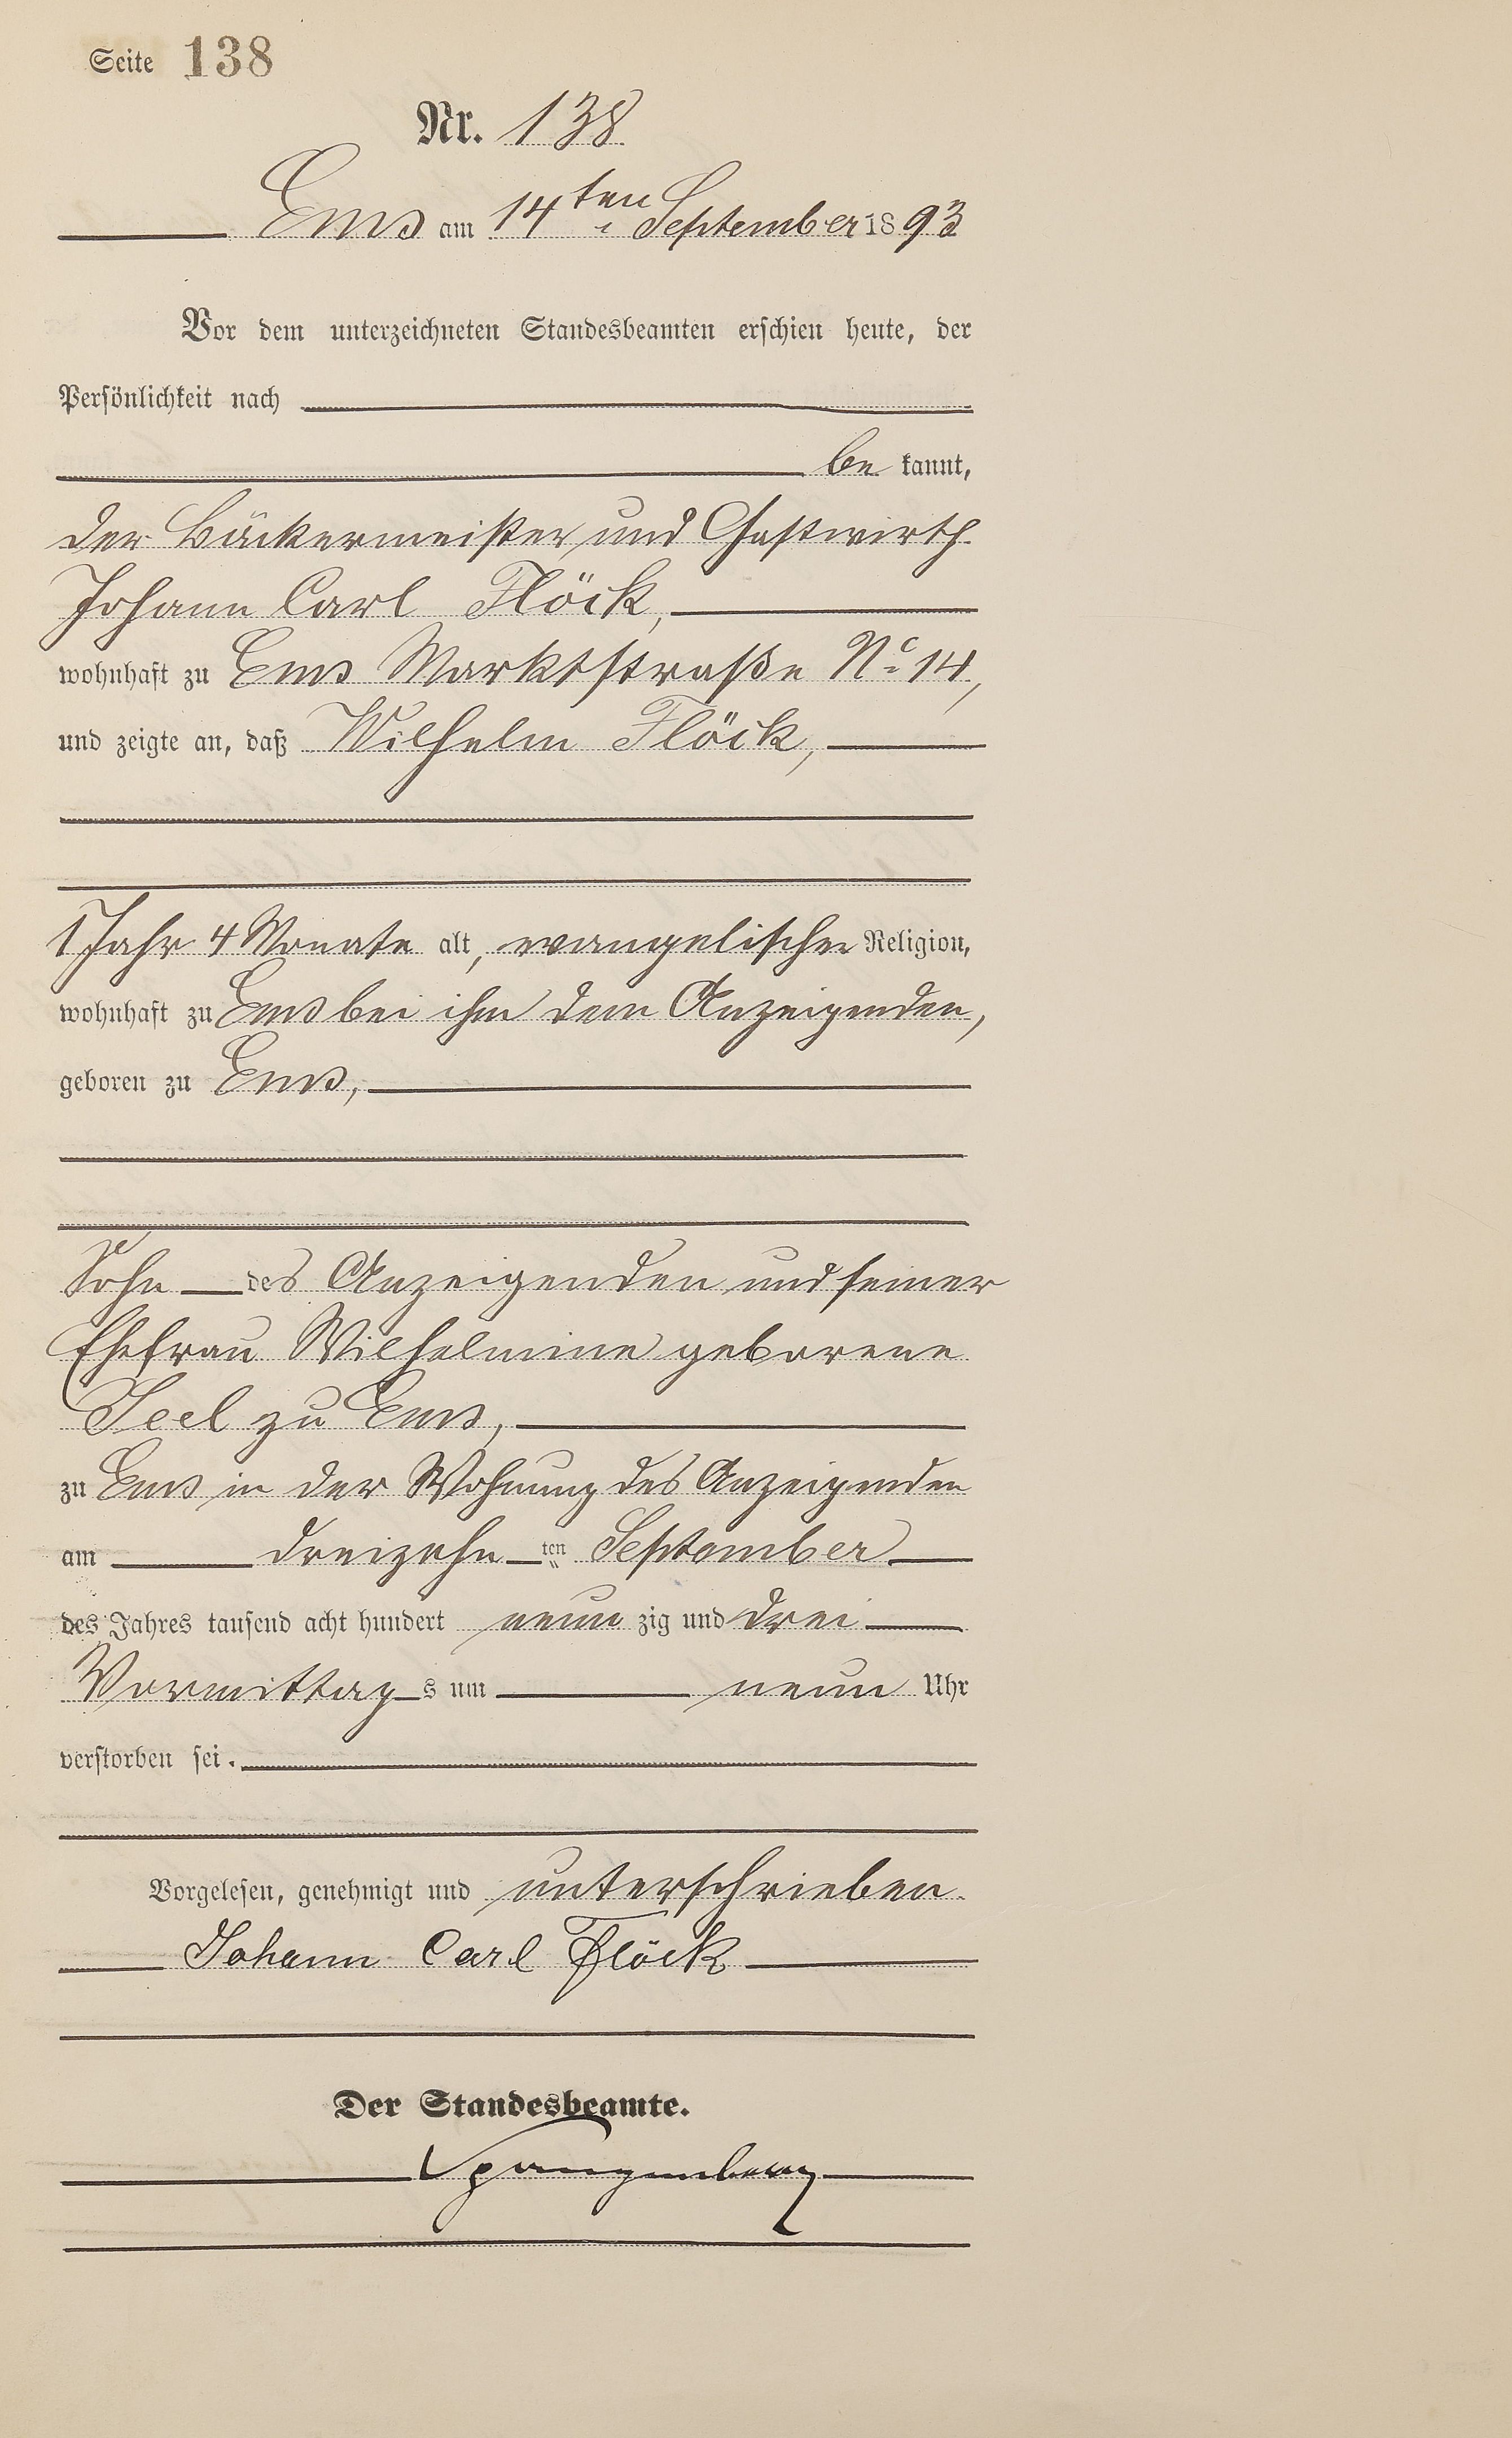 Seite 138
Nr. 138
Ems am 14ten September 1893
Vor dem unterzeichneten Standesbeamten erschien heute, der
Persönlichkeit nach
be kannt,
der Bäckermeister und Gastwirth
Johann Carl Flöck,
wohnhaft zu Ems Marktstraße No 14,
und zeigte an, daß Wilhelm Flöck,
1 Jahr 4 Monate alt, evangelischer Religion,
wohnhaft zu Ems bei ihm dem Anzeigenden,
geboren zu Ems,
Sohn des Anzeigenden und seiner
Ehefrau Wilhelmine geborene
Seel zu Ems,
zu Ems in der Wohnung des Anzeigenden
am dreizehn ten September
des Jahres tausend acht hundert neun zig und drei
Vormittag s um neun Uhr
verstorben sei.
Vorgelesen, genehmigt und unterschrieben.
Johann Carl Flöck
Der Standesbeamte.
Spangenberg